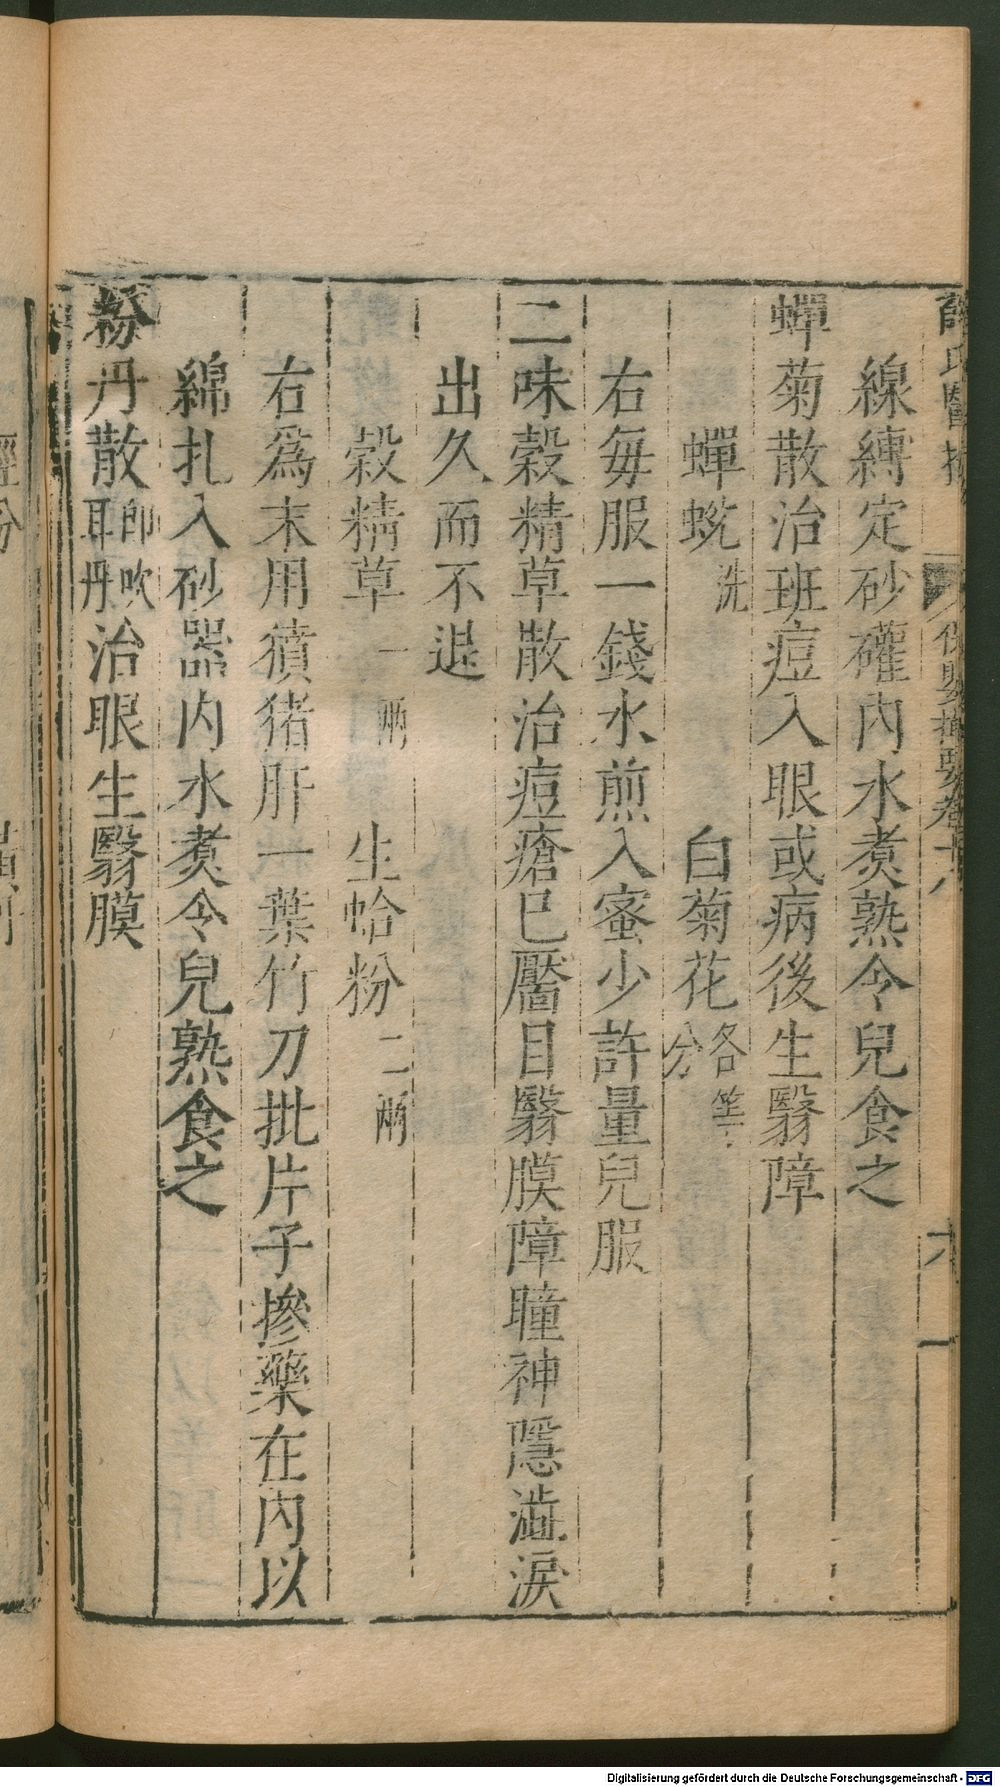 線縳定砂礶内水煮熟令兒食之
蟬菊散治班痘入眼或病後生翳障
蟬蛻洗 白菊花各等分
右每服一錢水煎入蜜少許量兒服
二味榖精草散治痘瘡已靨目翳膜障瞳神隱澁淚
出久而不退
榖精草一兩 生蛤粉二兩
右爲末用獖猪肝一葉竹刀批片子摻藥在内以
綿扎入砂器内水煮令兒熟食之
粉丹散即吹耳丹治眼生翳膜
Digitalisierung gefördert durch die Deutsche Forschungsgemeinschaft - DFG